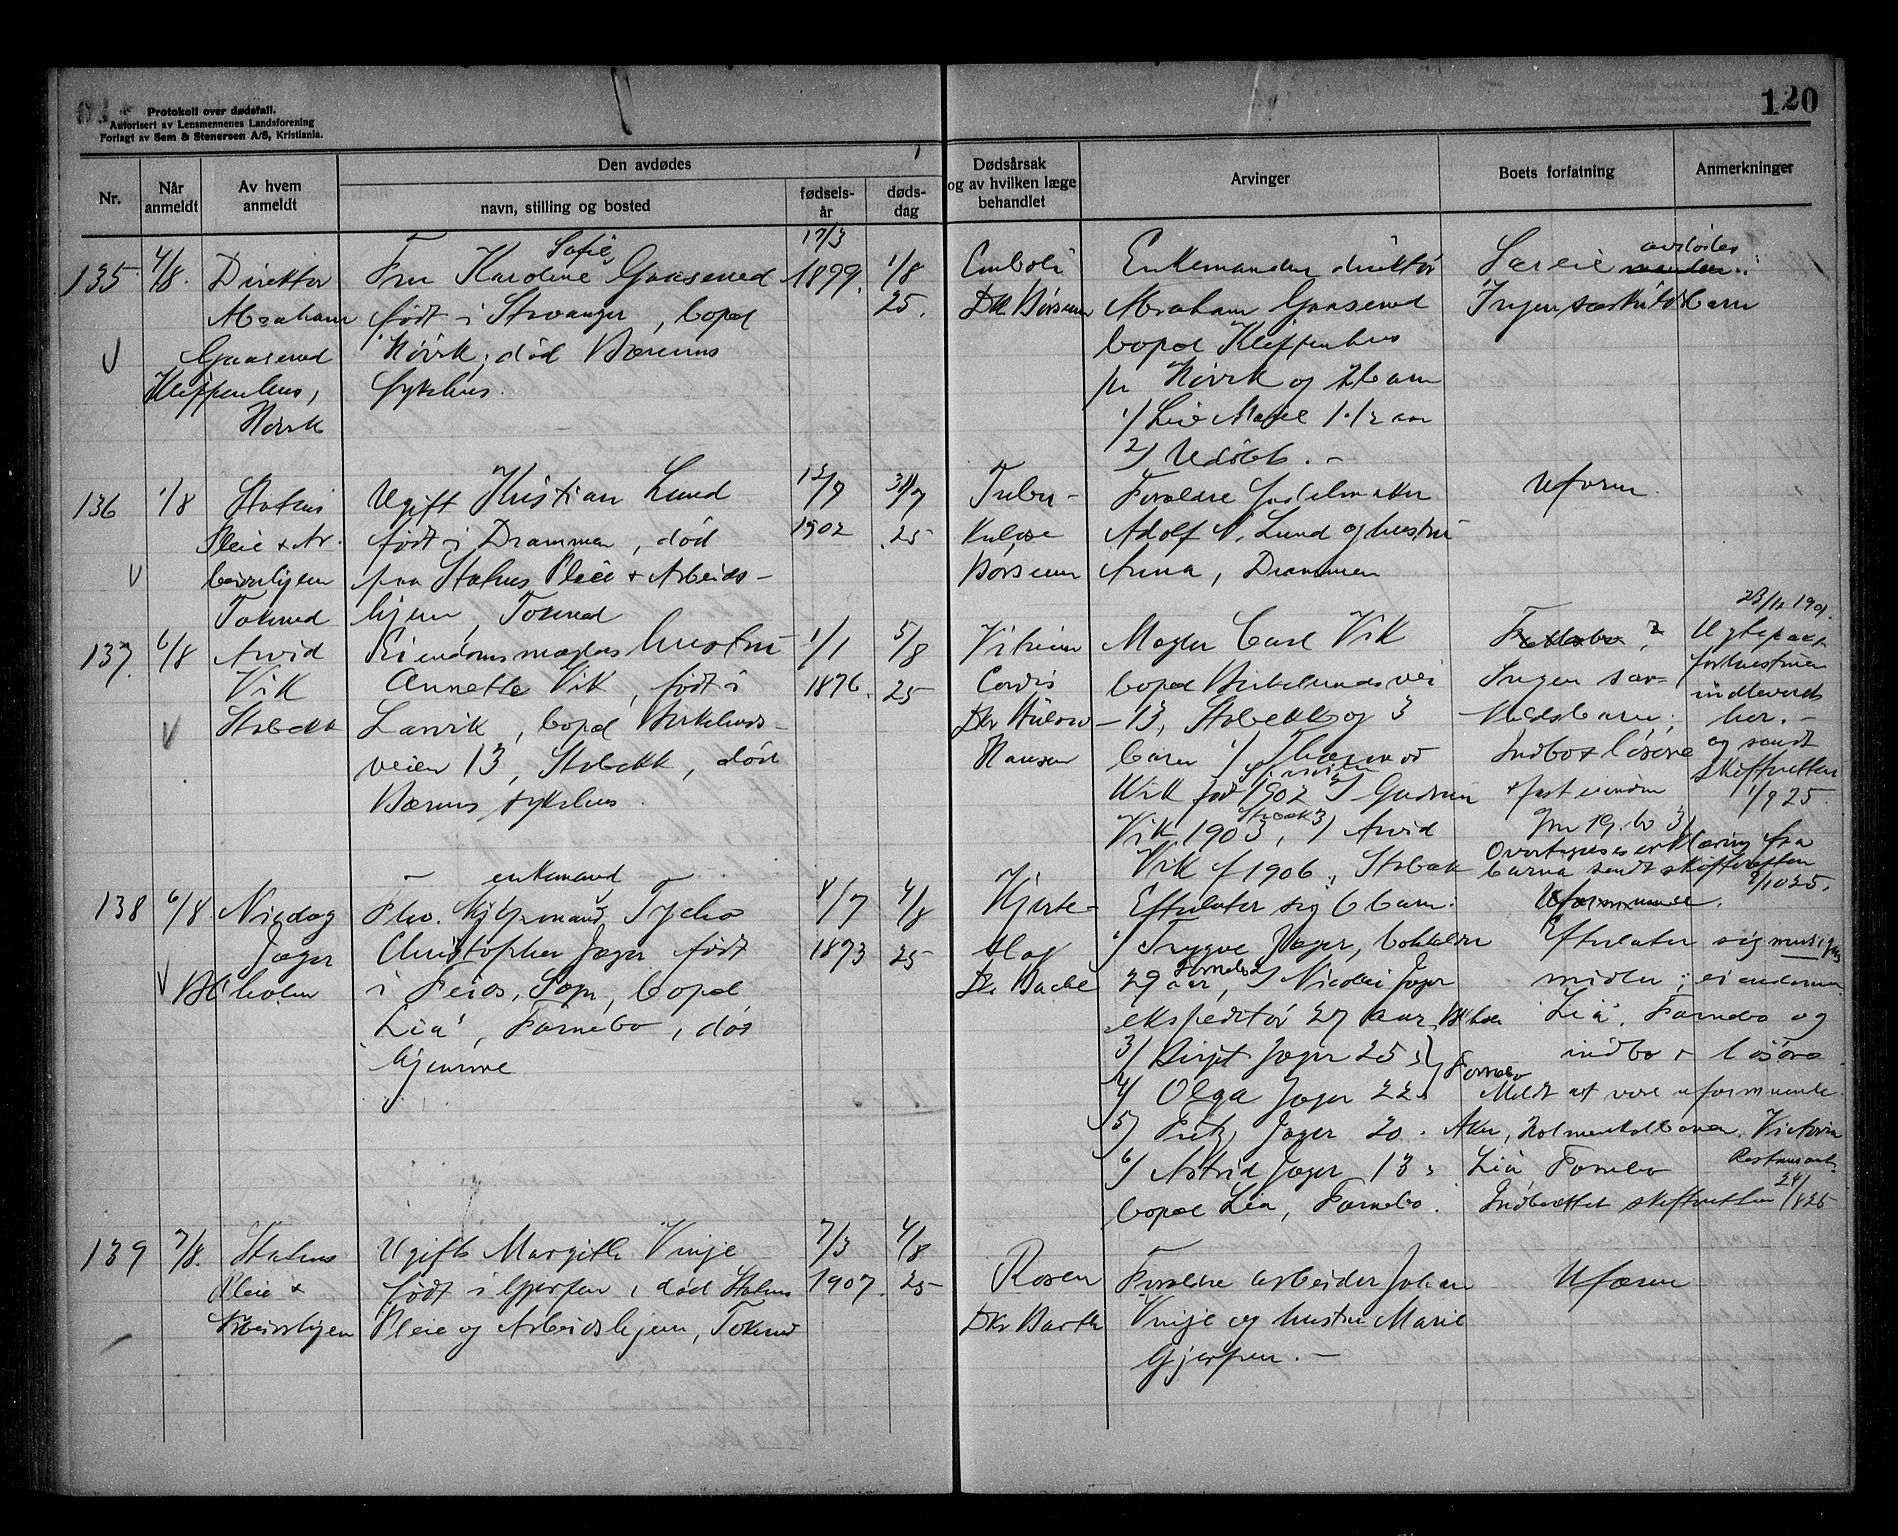 Protokoll over dødsfall.
Autorisert av Lensmennenes Landsforening
Forlagt av Sem & Stenersen A/S, Kristiania.
120
Nr.
Når anmeldt
Av hvem anmeldt
Den avdødes
navn, stilling og bosted
fødsels-år
døds-dag
Dødsårsak og av hvilken læge behandlet
Arvinger
Boets forfatning
Anmerkninger
135
4/8.
Direktør
Abraham
Gaaserud
Kleppenhus,
Høvik
Fru Karoline Sofie Gaaserud
født i Stavanger, bopel
Høvik, død Bærums
sykehus.
17/3
1899.
1/8
25.
Emboli
Dr. Børsum
Enkemanden direktør
Abraham Gaaserud
bopel Kleppenhus
pr Høvik og 2 barn
1/ Marie 1 1/2 aar
2/ Udøbt. –
Særeie avdødes
Ingen særkuldsbarn
136
1/8
Statens
Pleie + Ar-
beidshjem
Tokerud
Ugift Kristian Lund
født i Drammen, død
paa Statens Pleie + Arbeids-
hjem, Tokerud
13/9
1902
31/7
25
Tuber-
kulose
Børsum
Forældre
Adolf N. Lund og hustru
Anna, Drammen
Uform.
137.
6/8
Arvid
Vik
Stabekk
Eiendomsmæglers hustru
Annette Vik, født i
Larvik, bopel Birkelunds-
veien 13, Stabekk, død
Bærums sykehus.
1/1
1876.
5/8
25
Vitium
Cordis
Dr Bülow
Hansen
Mægler Carl Vik
bopel Birkelundsvei
– 13, Stabekk og 3
barn 1/
Vik født 1902 2/ Gudrun
Vik 1903, 3/ Arvid
Vik f 1906, Stabæk
Ingen sær-
kuldsbarn.
Indbo + løsøre
+ fast eiendom
Gnr 19. b 3
Overtagelseserklæring fra
barna sendt skifteretten
2/10 25.
23/12 1901.
Ugtepakt
for hustruen
indleveret
her. –
og sendt
skifteretten
1/9 25.
138
6/8
Nicolay
Jæger
Blholm
– enkemand
Tycho
Christopher Jæger født
i Feios, Sogn, bopel
Lia, Fornebo, død
hjemme
4/7
1873
4/8
25
Hjerte-
slag
Dr. Bache
Efterlater sig 6 barn.
1/ Trygve Jæger, bokholder
29 aar, Fornebo 2/ Nicolai Jæger
ekspeditør 27 aar,
3/ Birgit Jæger 25 "
4/ Olga Jæger 22 " Fornebo
5/ Fritz Jæger 20. Aker, Holmenkolbanen. Victoria
Restaurant
6/ Astrid Jæger 13 " Lia Fornebo
bopel Lia, Fornebo.
Uformuende.
Efterlater sig
midler; eiendommen
Lia, Fornebo og
indbo + løsøre
Meldt at være uformuende
Indberettet skifteretten 24/8 25
139
7/8.
Statens
Pleie +
Arbeidshjem
Ugift Margith Vinje
født i Gjerpen, død Statens
Pleie og Arbeidshjem, Tokerud
7/3
1907.
4/8
25
Rosen
Dr Barth
Forældre arbeider Johan
Vinje og hustru Marie
Gjerpen. –
Uform